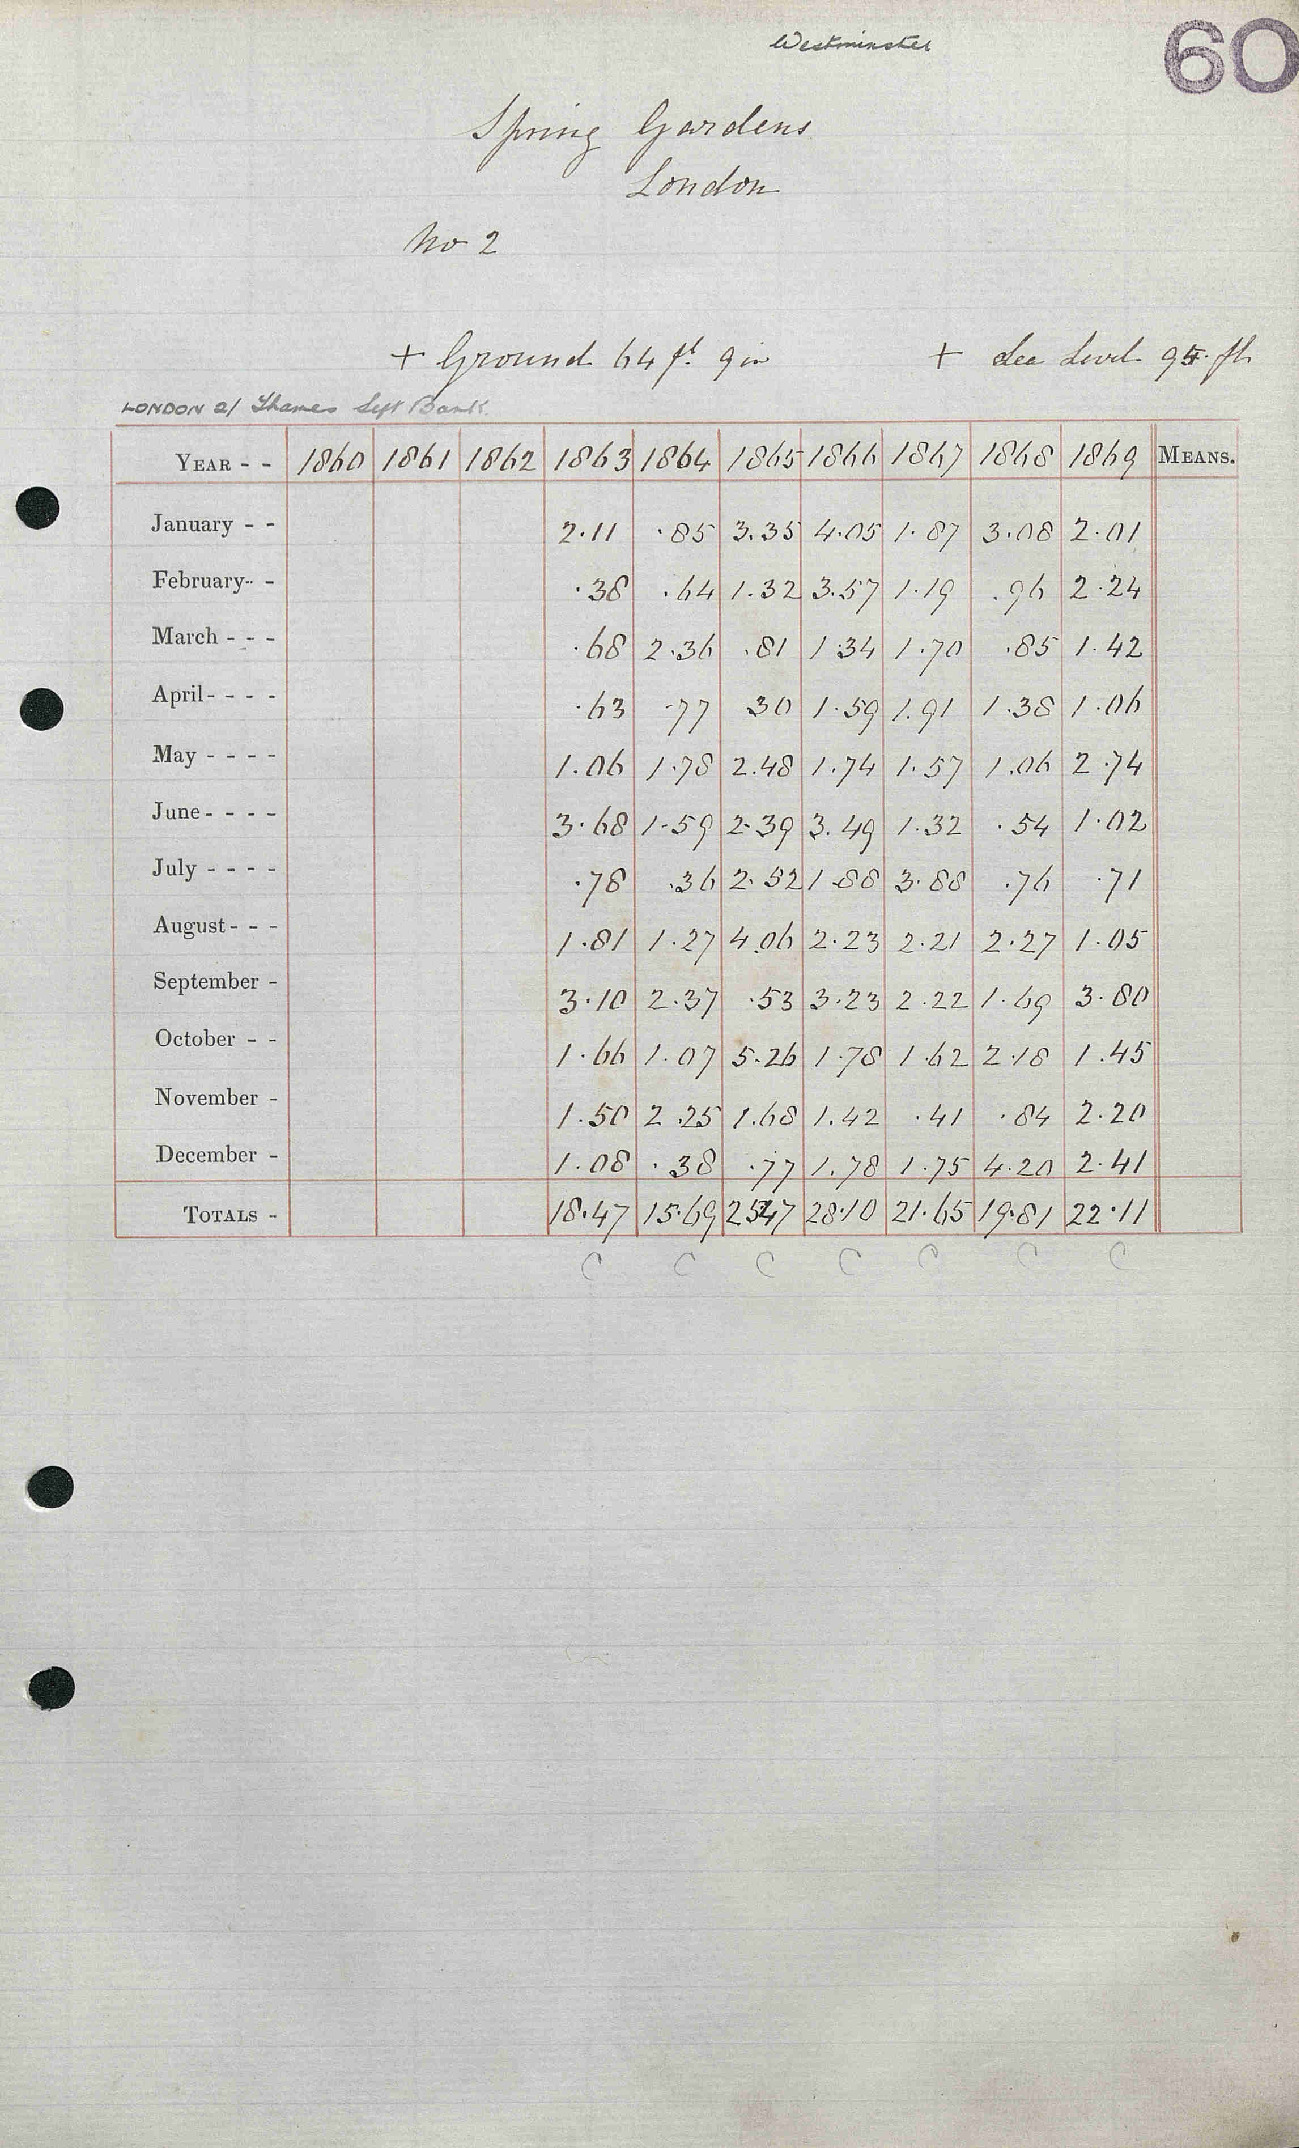 Westminster
60
Spring Gardens
London
No 2
+ Ground 64 ft 9 in + Sea Level 95 ft
LONDON 2/ Thames Left Bank
YEAR - - 1860 1861 1862 1863 1864 1865 1866 1867 1868 1869 MEANS.
January - - 2.11 .85 3.35 4.05 1.87 3.08 2.01
February - - .38 .64 1.32 3.57 1.19 .96 2.24
March - - - .68 2.36 .81 1.34 1.70 .85 1.42
April - - - - .63 .77 30 1.59 1.91 1.38 1.06
May - - - - 1.06 1.78 2.48 1.74 1.57 1.06 2.74
June - - - - 3.68 1.59 2.39 3.49 1.32 .54 1.02
July - - - - .78 .36 2.52 1.88 3.88 .76 .71
August - - - 1.81 1.27 4.06 2.23 2.21 2.27 1.05
September - 3.10 2.37 .53 3.23 2.22 1.69 3.80
October - - 1.66 1.07 5.26 1.78 1.62 2.18 1.45
November - 1.50 2.25 1.68 1.42 .41 .84 2.20
December - 1.08 .38 .77 1.78 1.75 4.20 2.41
TOTALS - 18.47 15.69 25.47 28.10 21.65 19.81 22.11
C C C C C C C